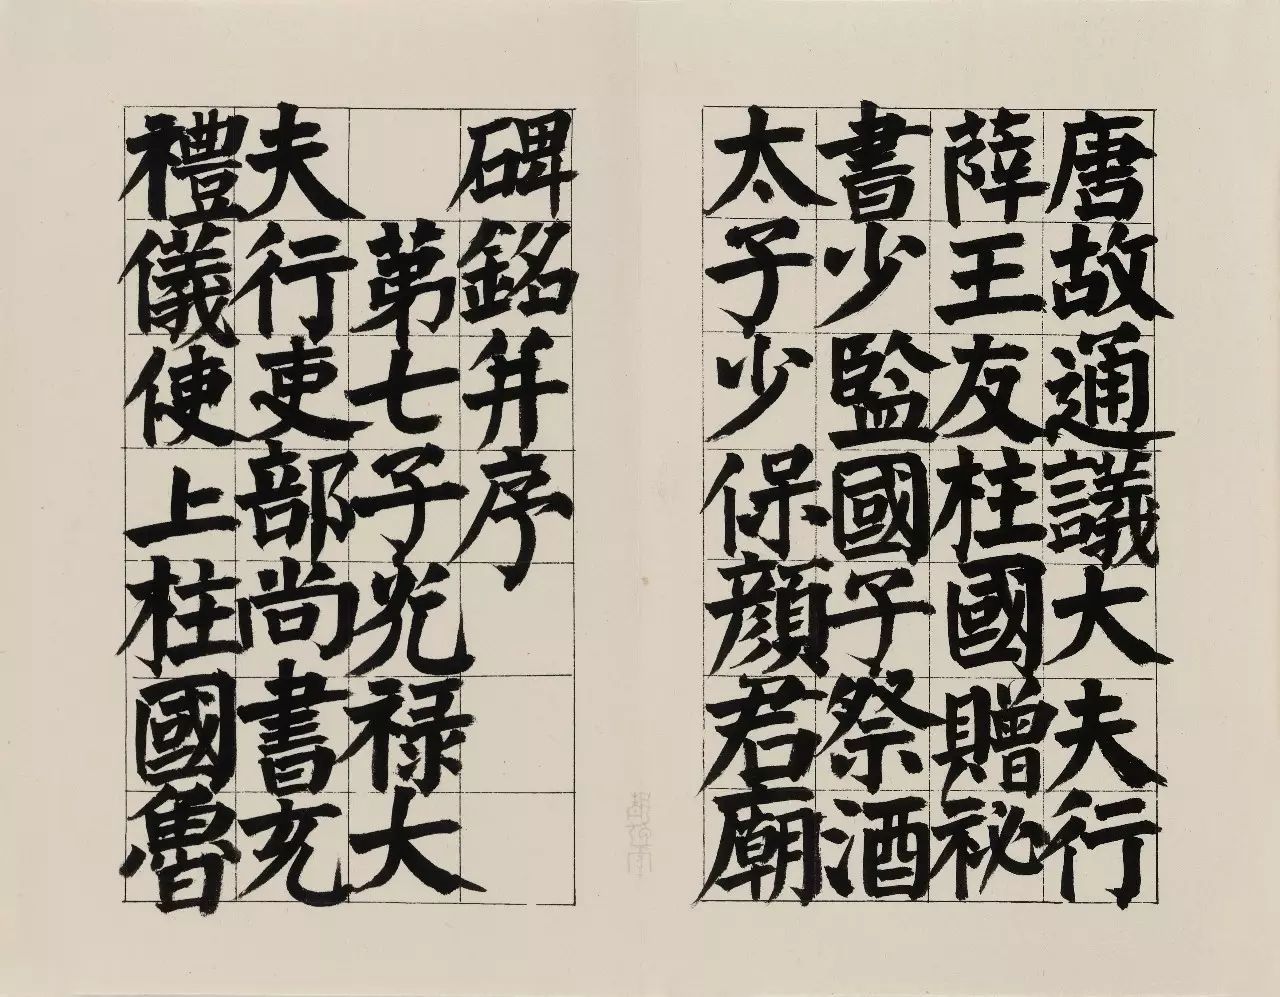 唐故通議大夫行
薛王友柱國贈祕
書少監國子祭酒
太子少保顏君廟
碑銘并序
第七子光祿大
夫行吏部尚書充
禮儀使上柱國魯